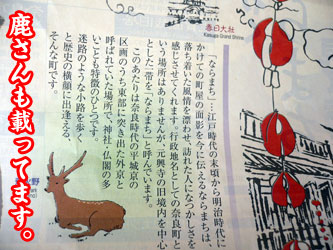 春日大社
Kasuga Grand Shrine
「ならまち」…江戸時代の末頃から明治時代に
かけての町屋の面影を今に伝えるならまちは、
落ち着いた風情を漂わせ、訪れた人になつかしさを
感じさせてくれます。行政地名としての奈良町と
いう場所はありませんが、元興寺の旧境内を中心
とした一帯を「ならまち」と呼んでいます。
このあたりは奈良時代の平城京の
区画のうち、東部に突き出た外京と
呼ばれていた場所で、神社・仏閣の多
いことも特徴のひとつです。
迷路のような小路を歩く
と歴史の横顔に出逢える、
そんな町です。
鹿さんも載ってます。